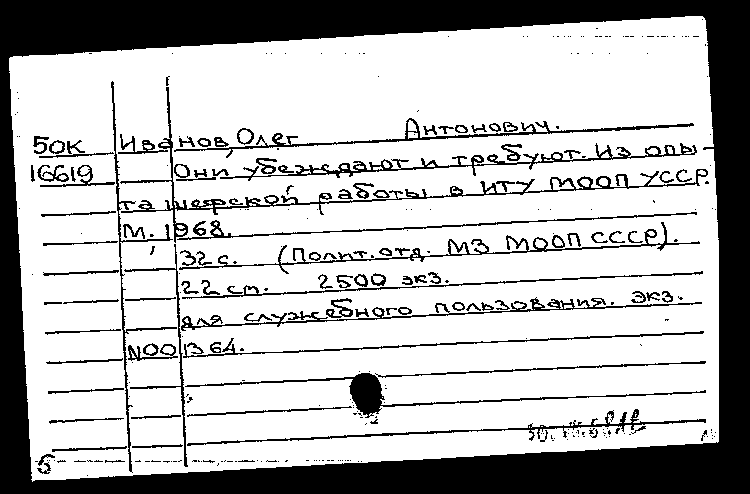 50к Иванов, Олег Антонович.
16619 Они убеждают и требуют. Из опы-
та шефской работы в ИТУ МООП УССР.
М., 1968.
32 с. (Полит. отд. МЗ МООП СССР).
22 см. 2500 экз.
для служебного пользования. экз.
N001364.
5